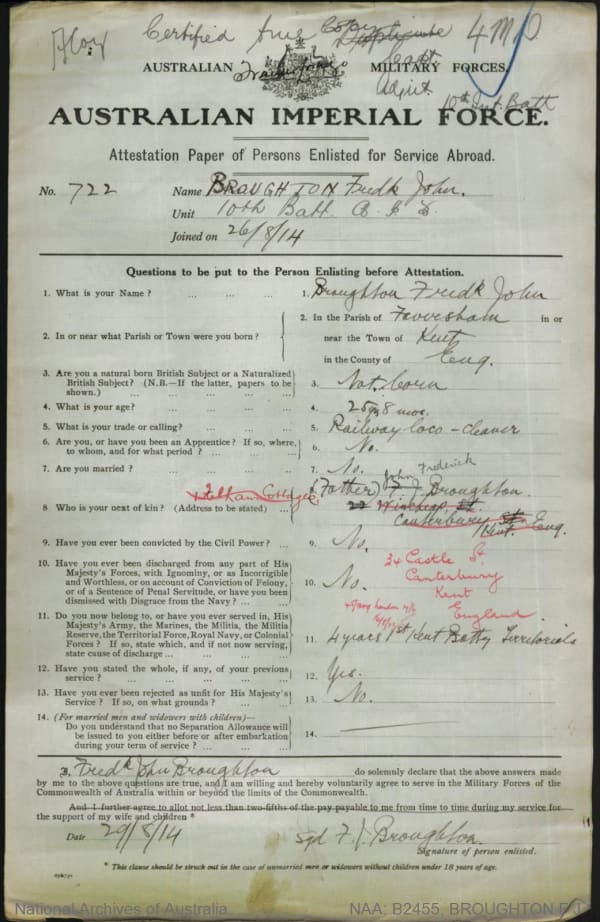 Certified true Copy
4 MD
Capt
Adjut.
10th Inf. Batt
AUSTRALIAN MILITARY FORCES.
AUSTRALIAN IMPERIAL FORCE.
Attestation Paper of Persons Enlisted for Service Abroad.
No. 722 Name BROUGHTON Fredk John.
Unit 10th Batt. A. I. F.
Joined on 26/8/14
Questions to be put to the Person Enlisting before Attestation.
1. What is your Name ? ... ... ... 1. Broughton Fredk John
2. In or near what Parish or Town were you born ? 2. In the Parish of Faversham in or
near the Town of Kent
in the County of Eng.
3. Are you a natural born British Subject or a Naturalized
British Subject? (N.B.—If the latter, papers to be
shown.) 3. Nat. born
4. What is your age? ... ... ... 4. 25 8 mos.
5. What is your trade or calling? ... ... 5. Railway loco - cleaner
6. Are you, or have you been an Apprentice? If so, where,
to whom, and for what period ? ... ... 6. No.
7. Are you married ? ... ... ... 7. No.
John Frederick
8. Who is your next of kin? (Address to be stated) ... 8. (Father) F. J Broughton.
Cottages
Canterbury St. Eng.
Kent.
9. Have you ever been convicted by the Civil Power? ... 9. No.
34 Castle St.
Canterbury
Kent
England
10. Have you ever been discharged from any part of His
Majesty's Forces, with Ignominy, or as Incorrigible
and Worthless, or on account of Conviction of Felony,
or of a Sentence of Penal Servitude, or have you been
dismissed with Disgrace from the Navy ? ... ... 10. No.
11. Do you now belong to, or have you ever served in, His
Majesty's Army, the Marines, the Militia, the Militia
Reserve, the Territorial Force, Royal Navy, or Colonial
Forces? If so, state which, and if not now serving,
state cause of discharge ... ... ... 11. 4 years 1st Kent Batty Territorials
12. Have you stated the whole, if any, of your previous
service ? ... ... ... 12. Yes.
13. Have you ever been rejected as unfit for His Majesty's
Service? If so, on what grounds ? ... ... 13. No.
14. (For married men and widowers with children)—
Do you understand that no Separation Allowance will
be issued to you either before or after embarkation
during your term of service ? ... ... ... 14.
I, Fredk John Broughton do solemnly declare that the above answers made
by me to the above questions are true, and I am willing and hereby voluntarily agree to serve in the Military Forces of the
Commonwealth of Australia within or beyond the limits of the Commonwealth.
And I further agree to allot not less than two-fifths of the pay payable to me from time to time during my service for
the support of my wife and children *
Date 29/8/14 sgd F. J. Broughton.
Signature of person enlisted.
* This clause should be struck out in the case of unmarried men or widowers without children under 18 years of age.
National Archives of Australia NAA: B2455, BROUGHTON F J